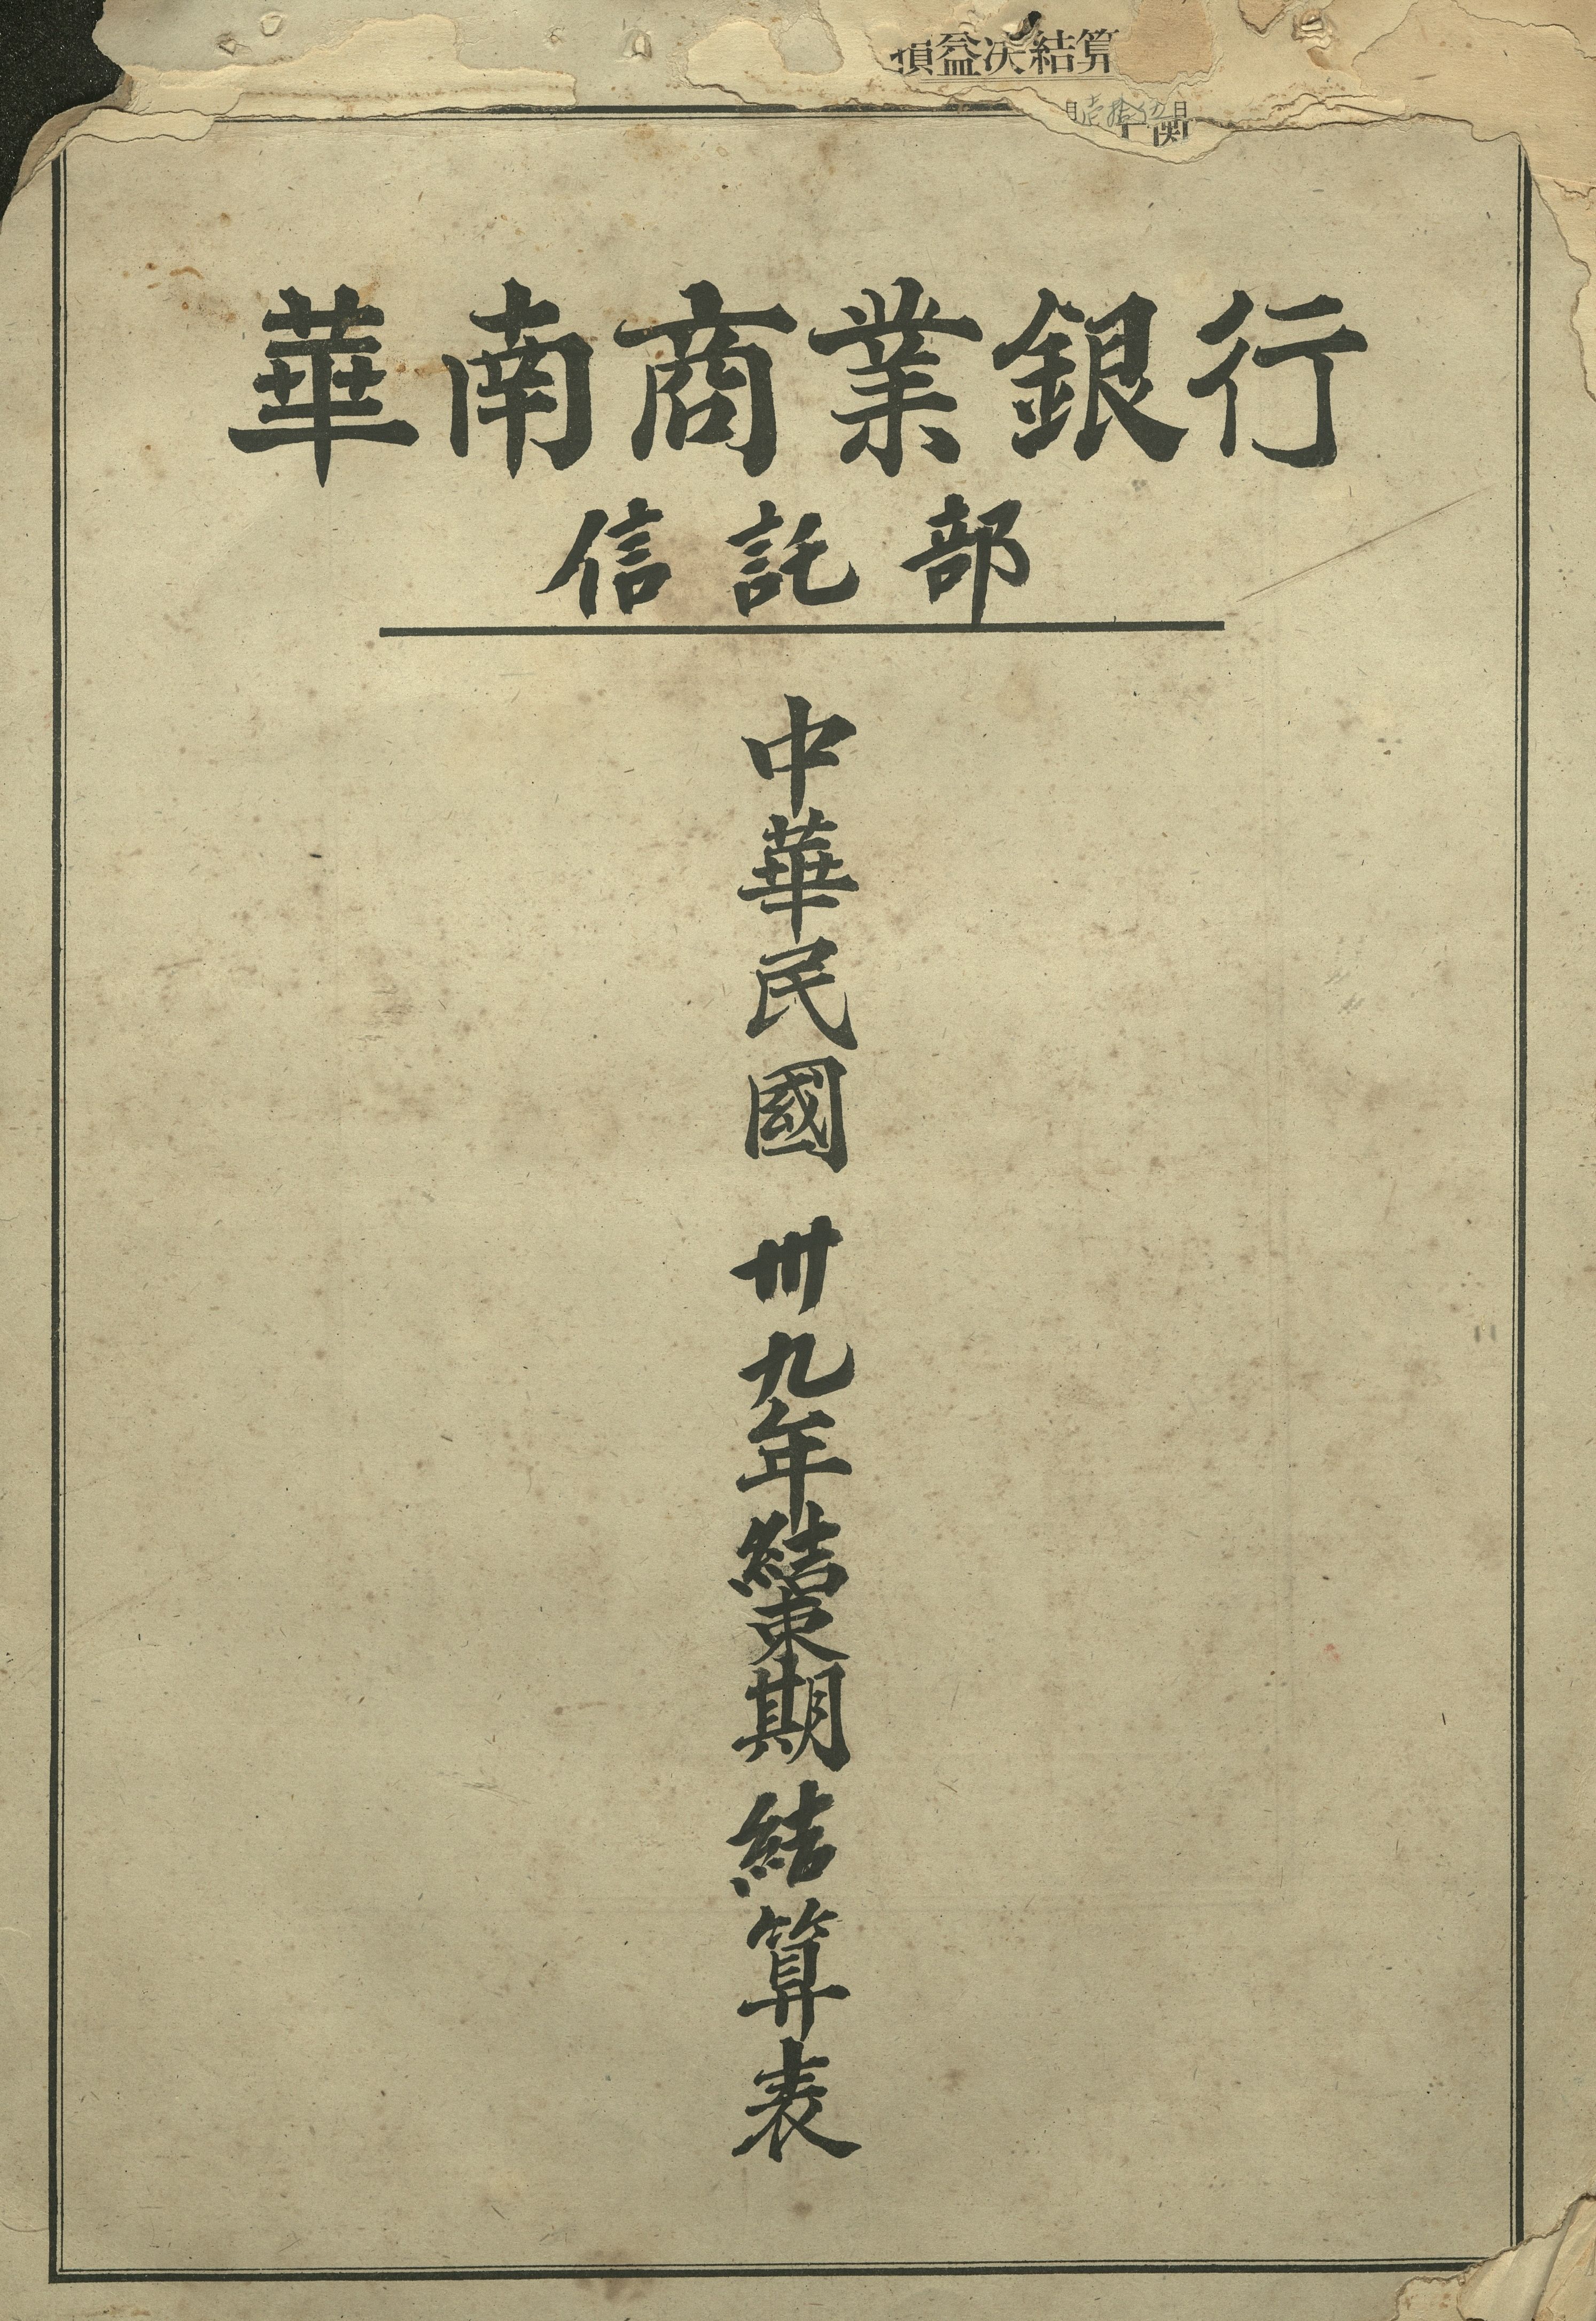 損益決結算
華南商業銀行
信託部
中華民國卅九年結束期結算表